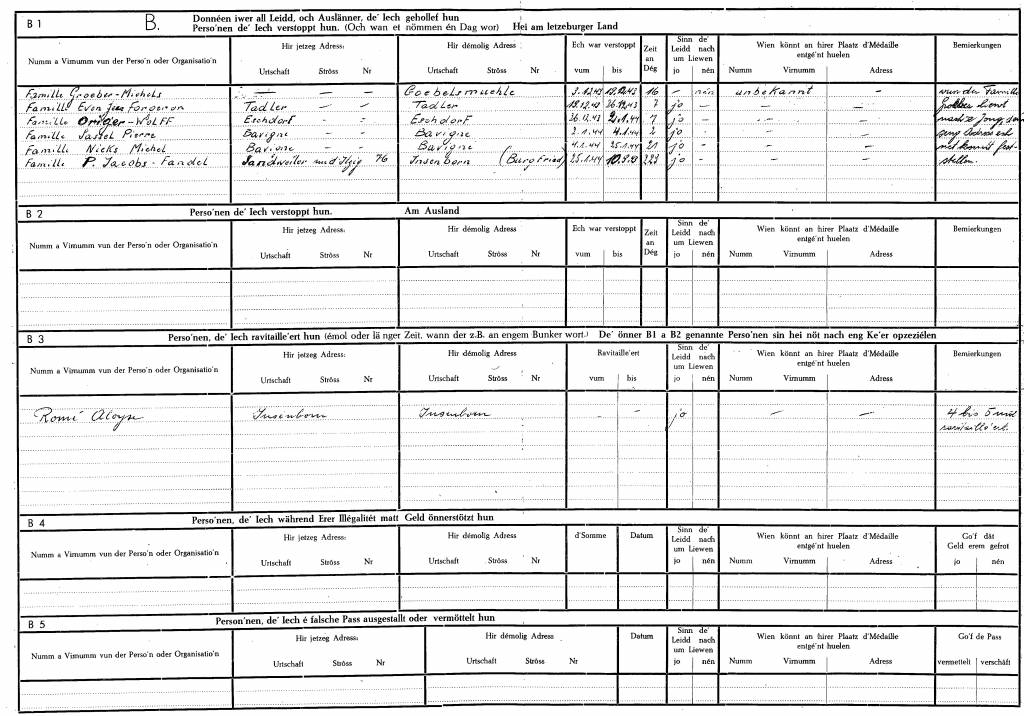 B 1 B. Donnéen iwer all Leidd, och Auslänner, de' Iech gehollef hun
Perso'nen de' Iech verstoppt hun. (Och wan et nömmen én Dag wor) Hei am letzeburger Land
Numm a Virnumm vun der Perso'n oder Organisatio'n Hir jetzeg Adress: Hir démolig Adress Ech war verstoppt Zeit an Dég Sinn de' Leidd nach um Liewen Wien könnt an hirer Plaatz d'Médaille entgé'nt huelen Bemierkungen
Urtschaft Ströss Nr Urtschaft Ströss Nr vum bis jo nén Numm Virnumm Adress
Famille Groeber-Michels — Goebelsmuehle 3.12.43 18.12.43 16 — nén unbekannt — vun der Famille
Famille Even Forgeron Tadler — — Tadler 18.12.43 26.12.43 7 jo — — —
Famille Origer-Wolff Eschdorf — — Eschdorf 26.12.43 2.1.44 7 jo — — —
Famille Sassel Pierre Bavigne — — Bavigne 2.1.44 4.1.44 2 jo — — seng Adress ech
Famille Nicks Michel Bavigne — — Bavigne 4.1.44 25.1.44 21 jo — — — net konnt fest-
Famille P. Jacobs-Fandel Sandweiler 76 Insenborn (Burgfried) 25.1.44 223 jo — — — stellen.
B 2 Perso'nen de' Iech verstoppt hun. Am Ausland
Numm a Virnumm vun der Perso'n oder Organisatio'n Hir jetzeg Adress: Hir démolig Adress Ech war verstoppt Zeit an Dég Sinn de' Leidd nach um Liewen Wien könnt an hirer Plaatz d'Médaille entgé'nt huelen Bemierkungen
Urtschaft Ströss Nr Urtschaft Ströss Nr vum bis jo nén Numm Virnumm Adress
B 3 Perso'nen, de' Iech ravitaille'ert hun (émol oder lä nger Zeit, wann der z.B. an engem Bunker wort.) De' önner B1 a B2 genannte Perso'nen sin hei nöt nach eng Ke'er opzeziélen
Numm a Virnumm vun der Perso'n oder Organisatio'n Hir jetzeg Adress: Hir démolig Adress Ravitaille'ert Sinn de' Leidd nach um Liewen Wien könnt an hirer Plaatz d'Médaille entgé'nt huelen Bemierkungen
Urtschaft Ströss Nr Urtschaft Ströss Nr vum bis jo nén Numm Virnumm Adress
Romé Aloyse Insenborn Insenborn – – jo — — 4 bis 5 mol
ravitaillé'ert.
B 4 Perso'nen, de' Iech während Erer Illégalitét matt Geld önnerstötzt hun
Numm a Virnumm vun der Perso'n oder Organisatio'n Hir jetzeg Adress: Hir démolig Adress d'Somme Datum Sinn de' Leidd nach um Liewen Wien könnt an hirer Plaatz d'Médaille entgé'nt huelen Go'f dät Geld erem gefrot
Urtschaft Ströss Nr Urtschaft Ströss Nr jo nén Numm Virnumm Adress jo nén
B 5 Person'nen, de' Iech é falsche Pass ausgestallt oder vermöttelt hun
Numm a Virnumm vun der Perso'n oder Organisatio'n Hir jetzeg Adress: Hir démolig Adress Datum Sinn de' Leidd nach um Liewen Wien könnt an hirer Plaatz d'Médaille entgé'nt huelen Go'f de Pass
Urtschaft Ströss Nr Urtschaft Ströss Nr jo nén Numm Virnumm Adress vermettelt verschäft